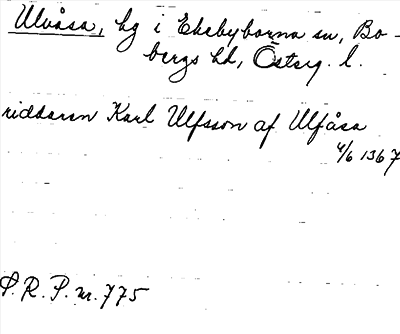 Ulvåsa, hg i Ekebyborna sn, Bo-
bergs hd, Österg. l.
riddaren Karl Ulfsson af Ulfåsa
4/6 1367
S.R.P. nr. 775